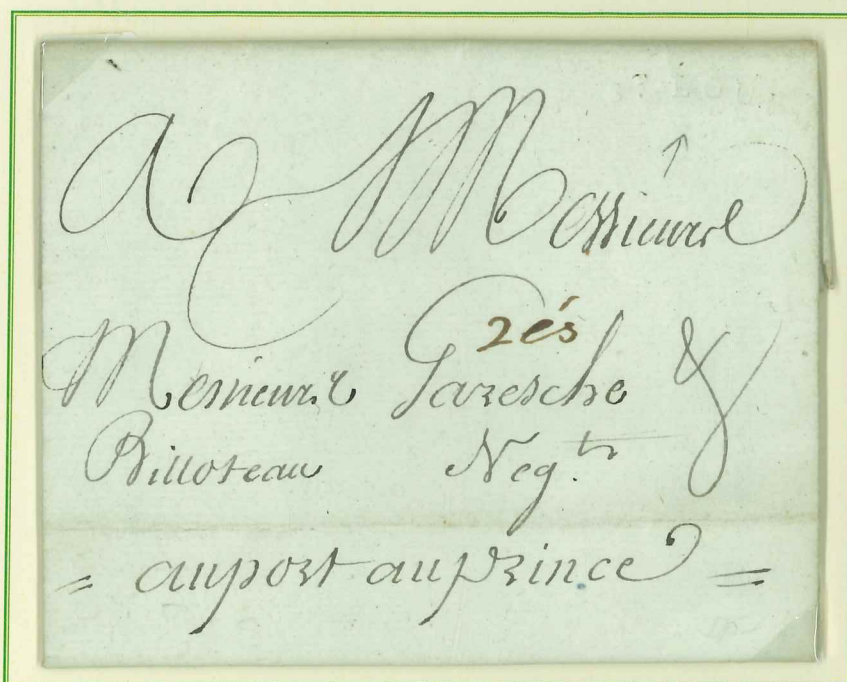 A Messieurs
2és
Messieurs Garesche &
Billoteau Neg.ts
= au port au prince =